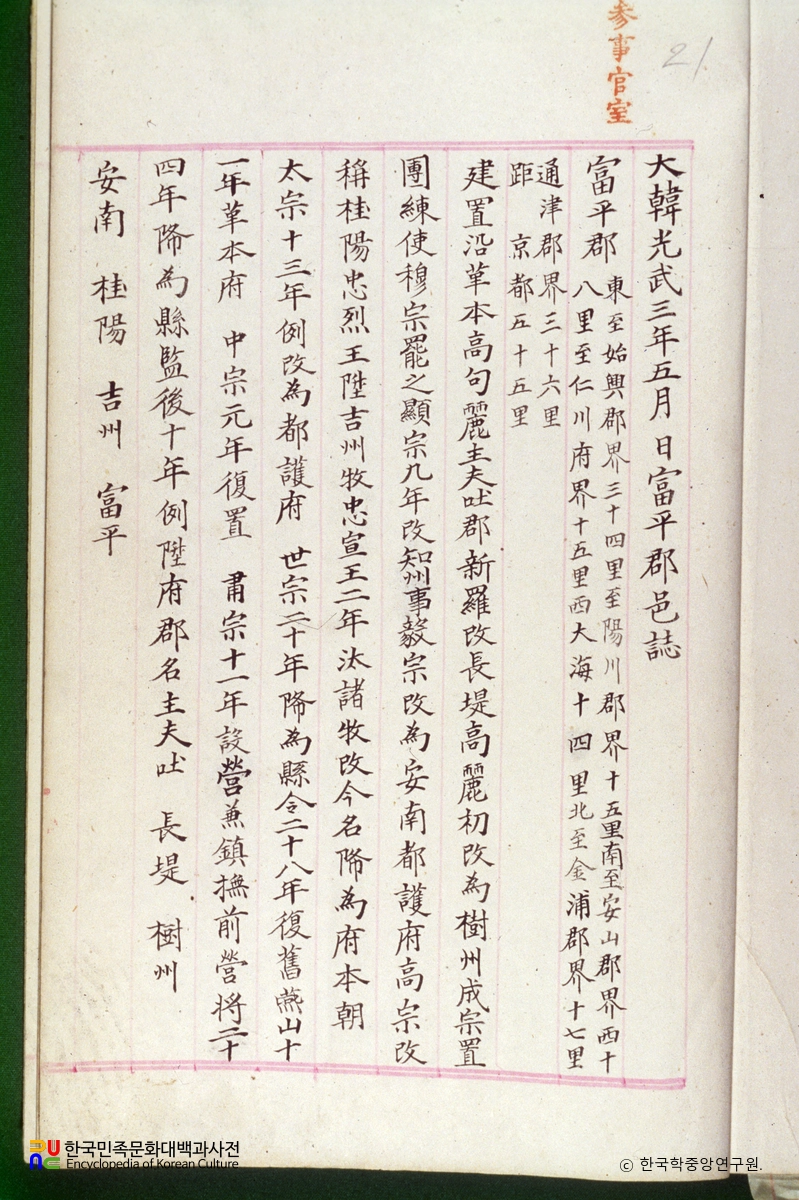 參事官室
21
大韓光武三年五月 日富平郡邑誌
富平郡 東至始興郡界三十四里至陽川郡界十五里南至安山郡界西十
八里至仁川府界十五里西大海十四里北至金浦郡界十七里
通津郡界三十六里
距 京都五十五里
建置沿革本高句麗主夫吐郡新羅改長堤高麗初改為樹州成宗置
團練使穆宗罷之顯宗九年改知州事毅宗改為安南都護府高宗改
稱桂陽忠烈王陞吉州牧忠宣王二年汰諸牧改今名降為府本朝
太宗十三年例改為都護府 世宗二十年降為縣令二十八年復舊燕山十
一年革本府 中宗元年復置 肅宗十一年設營兼鎮撫前營將二十
四年降為縣監後十年例陞府郡名主夫吐 長堤 樹州
安南 桂陽 吉州 富平
한국민족문화대백과사전
Encyclopedia of Korean Culture
ⓒ 한국학중앙연구원.